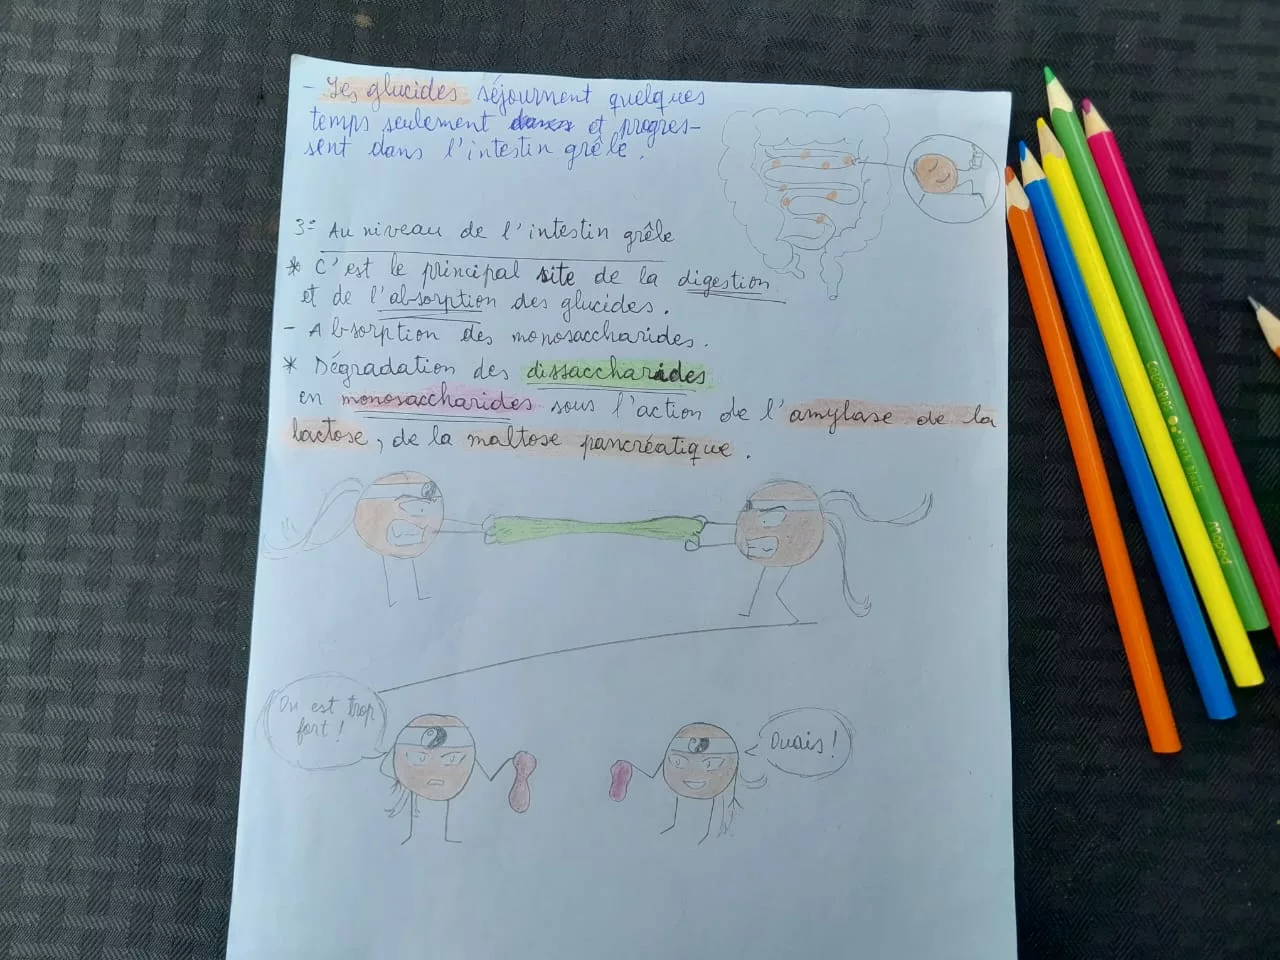 - Les glucides séjournent quelques
temps seulement et progres-
sent dans l'intestin grêle.
3= Au niveau de l'intestin grêle
* C'est le principal site de la digestion
et de l'absorption des glucides.
- Absorption des monosaccharides.
* Dégradation des dissaccharides
en monosaccharides sous l'action de l'amylase de la
lactose, de la maltose pancréatique.
On est trop
fort !
Ouais !
Maped